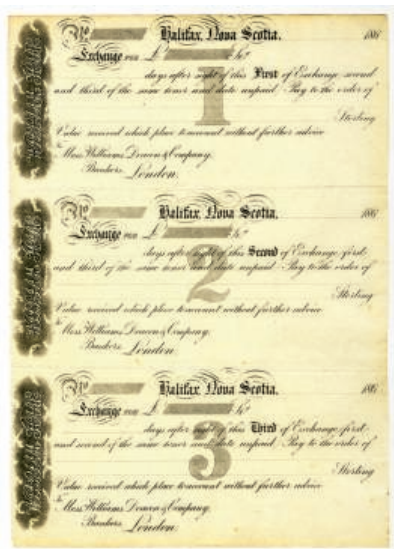 No Halifax, Nova Scotia. 186
Exchange FOR £ Stg
days after sight of this First of Exchange second
and third of the same tenor and date unpaid Pay to the order of
1
Sterling
Value received which place to account without further advice
To
Mess. Williams Deacon & Company,
Bankers London.
No Halifax, Nova Scotia. 186
Exchange FOR £ Stg
days after sight of this Second of Exchange first
and third of the same tenor and date unpaid Pay to the order of
2
Sterling
Value received which place to account without further advice
To
Mess. Williams Deacon & Company,
Bankers London.
No Halifax, Nova Scotia. 186
Exchange FOR £ Stg
days after sight of this Third of Exchange first
and second of the same tenor and date unpaid Pay to the order of
3
Sterling
Value received which place to account without further advice
To
Mess. Williams Deacon & Company,
Bankers London.